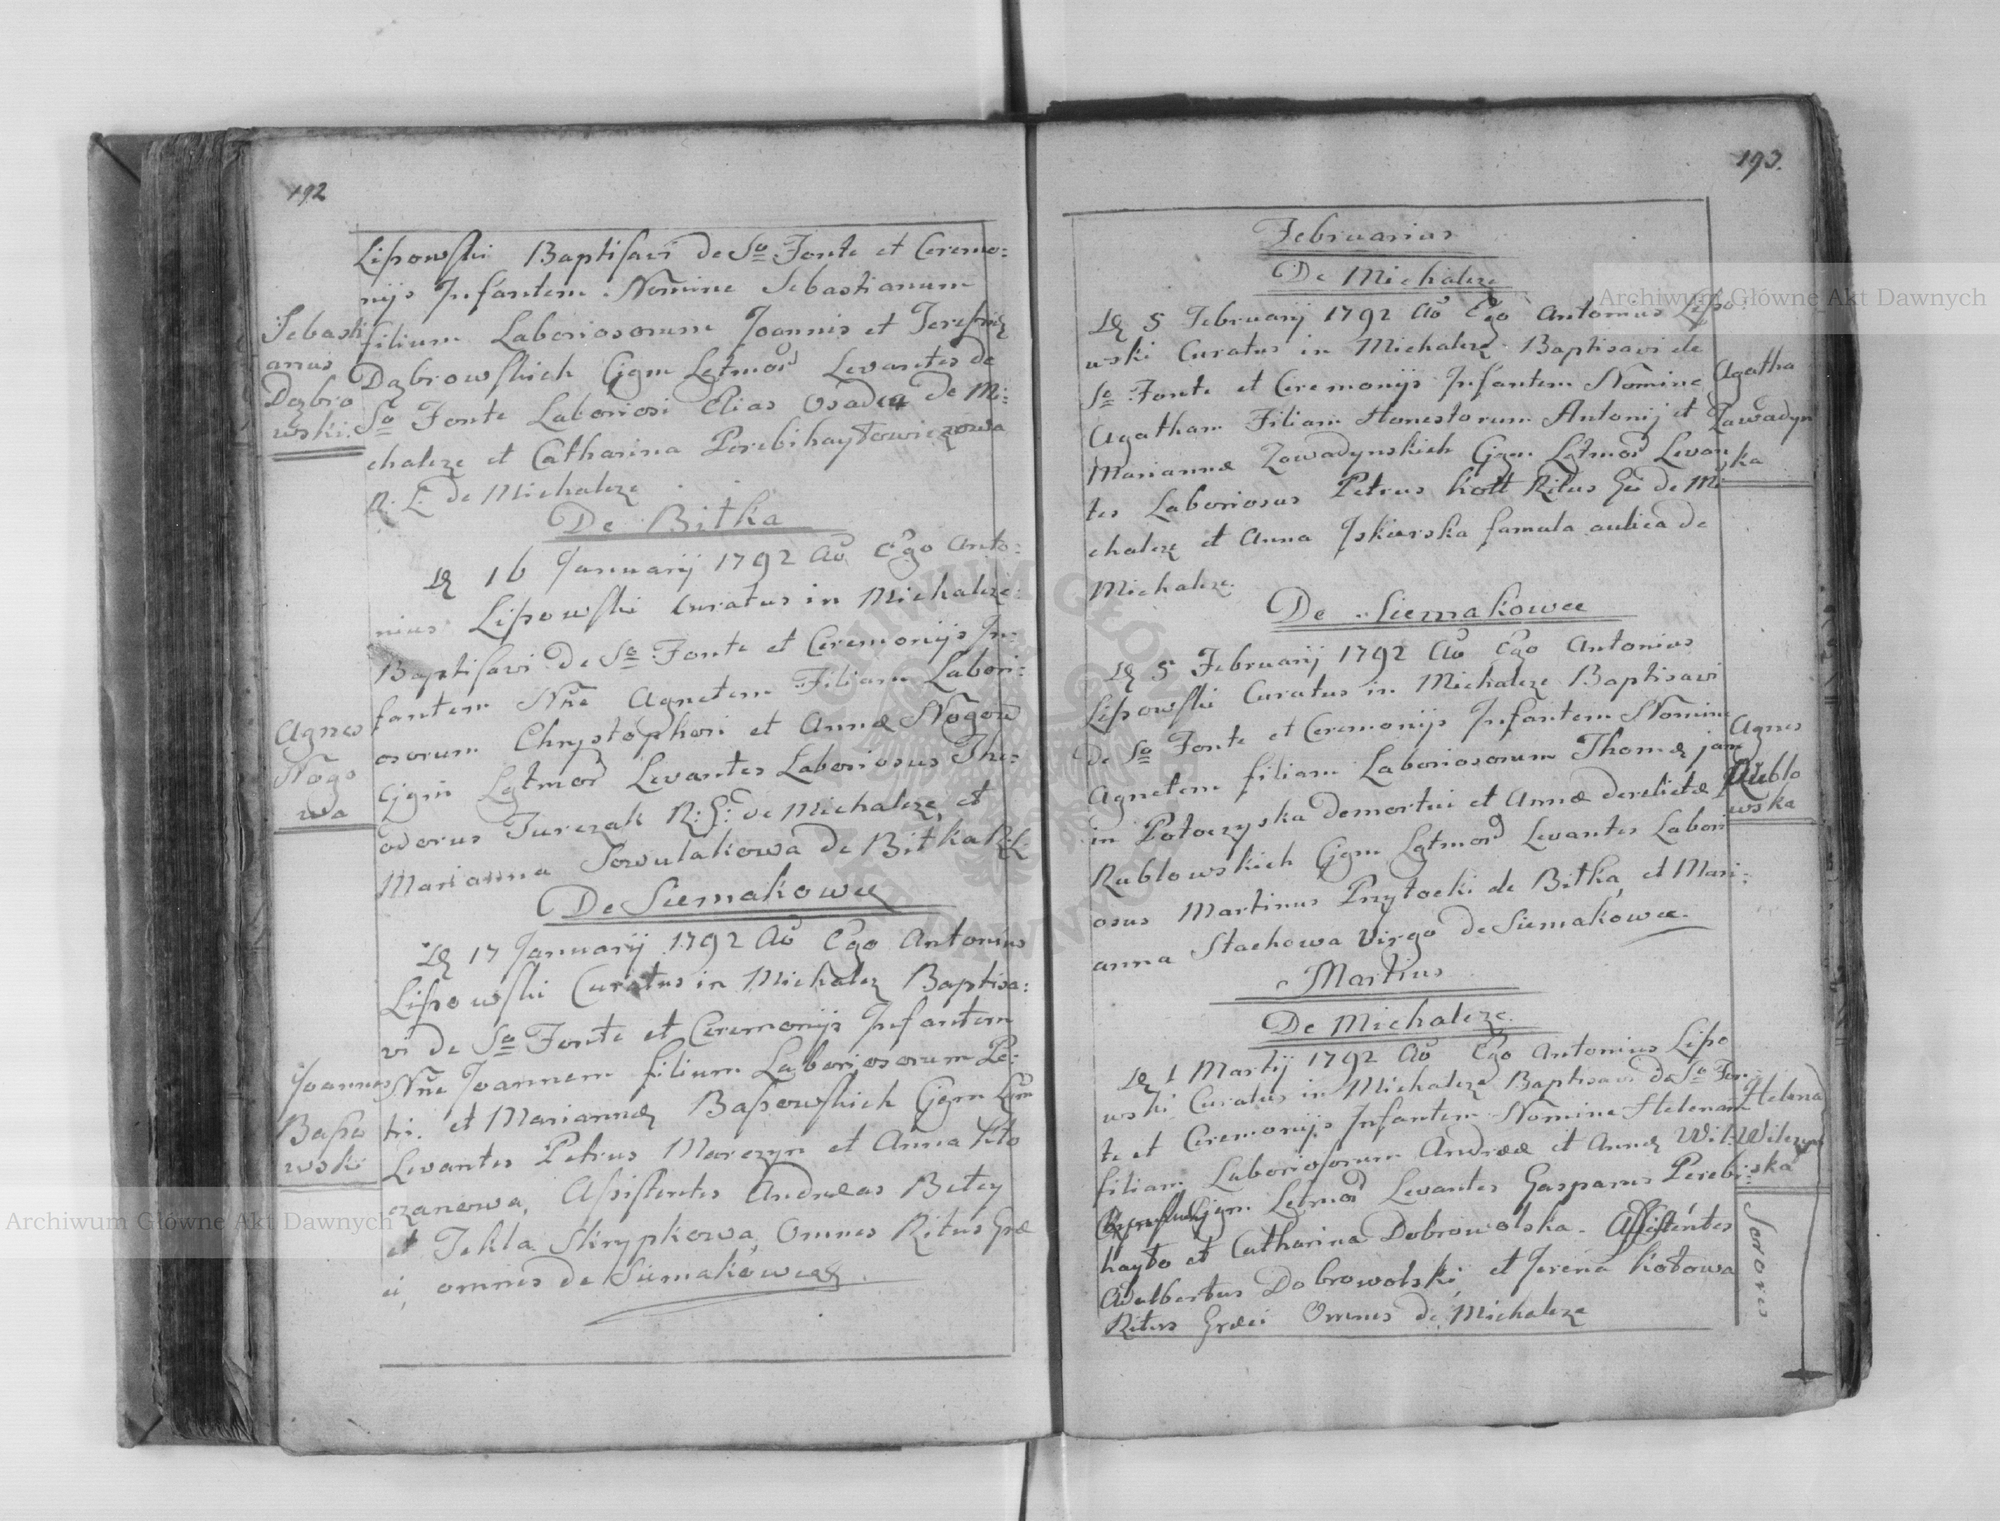 192
Lipowski Baptisavi de So Fonte et Ceremo=
nijs Infantem Nomine Sebastianum
filium Laboriosorum Joannis et Teresiæ
Dąbrowskich Cjgm Lgtmor Levantes de
So Fonte Laboriosi Elias Osadca de Mi:
chalcze et Catharina Perebihaytowiczowa
R: L: de Michalcze
Sebasti
anus
Dąbro
wski.
De Bitka
16 Januarij 1792 Ao Ego Anto:
nius Lipowski Curatus in Michalcze:
Baptisavi de So Fonte et Ceremonijs In:
fantem Nne Agnetem Filiam Labori:
osorum Chrystophori et Annæ Nogow
Cjgm Lgtmor Levantes Laboriosus The:
odorus Jurczak R: G: de Michalcze, et
Marianna Sowulakowa de Bitka R: L:
Agnes
Nogo
wa
De Siemakowce
17 Januarij 1792 Ao Ego Antonius
Lipowski Curatus in Michalcz Baptisa:
vi de So Fonte et Ceremonijs Infantem
Nne Joannem filium Laboriosorum Pe:
tri et Mariannæ Bapowskich Cjgm
Levantes Petrus Marczyn et Anna
czanowa, Assistentes Andreas
et Tekla Skrypkowa, Omnes Ritus Græ
ci, omnes de Siemakowce
Joannes
Bapo
wski
193.
Februarius
De Michalcze
5 Februarij 1792 Ao Ego Antonius Lipo:
wski Curatus in Michalcze Baptisavi de
So Fonte et Ceremonijs Infantem Nomine
Agatham Filiam Honestorum Antonij et
Mariannæ Zawadynskich Cjgm Lgtmor Levan
tes Laboriosus Petrus Kott Ritus Gri de Mi
chalcze et Anna Iskierska famula aulica de
Michalcze.
Agatha
Zawadyn
ska
De Siemakowce
5 Februarij 1792 Ao Ego Antonius
Lipowski Curatus in Michalcze Baptisavi
de So Fonte et Ceremonijs Infantem Nomine
Agnetem filiam Laboriosorum Thomæ jam
in Potoczyska demortui et Annæ derelictæ
Rublowskich Cjgm Lgtmor Levantes Labori
osus Martinus Przytocki de Bitka, et Mari:
anna Stachowa Virgo de Siemakowce.
Agnes
Rublo
wska
Martius
De Michalcze.
1 Martij 1792 Ao Ego Antonius Lipo
wski Curatus in Michalcze Baptisavi de So Fon:
te et Ceremonijs Infantem Nomine Helenam
filiam Laboriosorum Andreæ et Annæ Wil:
Cjgm Lgtmor Levantes Gasparus Perebi:
hayto et Catharina Dobrowolska. Assistentes
Adalbertus Dobrowolski, et Jerena Kotowa
Ritus Græci Omnes de Michalcze
Helena
Wilczyn
ska
Sorores
Archiwum Główne Akt Dawnych
Archiwum Główne Akt Dawnych
ARCHIWUM GŁÓWNE AKT DAWNYCH